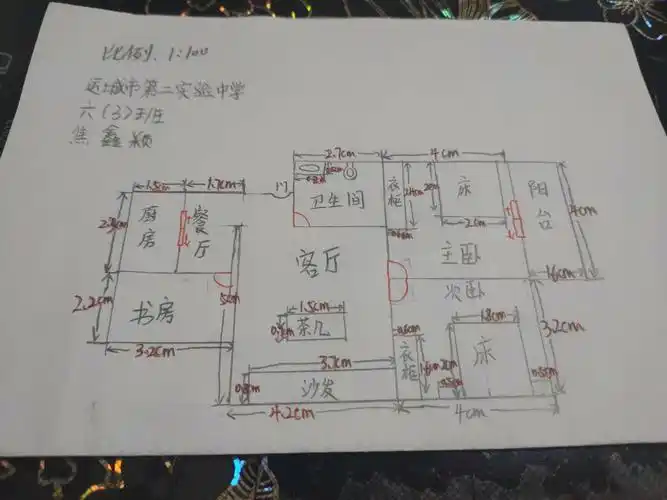 比例:1:100
运城市第二实验中学
六(3)班
焦鑫颖
2.7cm
4cm
1.5cm
1.7cm
门
卫生间
衣柜
2.4cm
床
2cm
阳台
4cm
厨房
餐厅
客厅
主卧
1.6cm
次卧
2.2cm
书房
5cm
1.5cm
茶几
1.8cm
3.2cm
3.2cm
0.6cm
衣柜
床
3.7cm
沙发
4.2cm
4cm